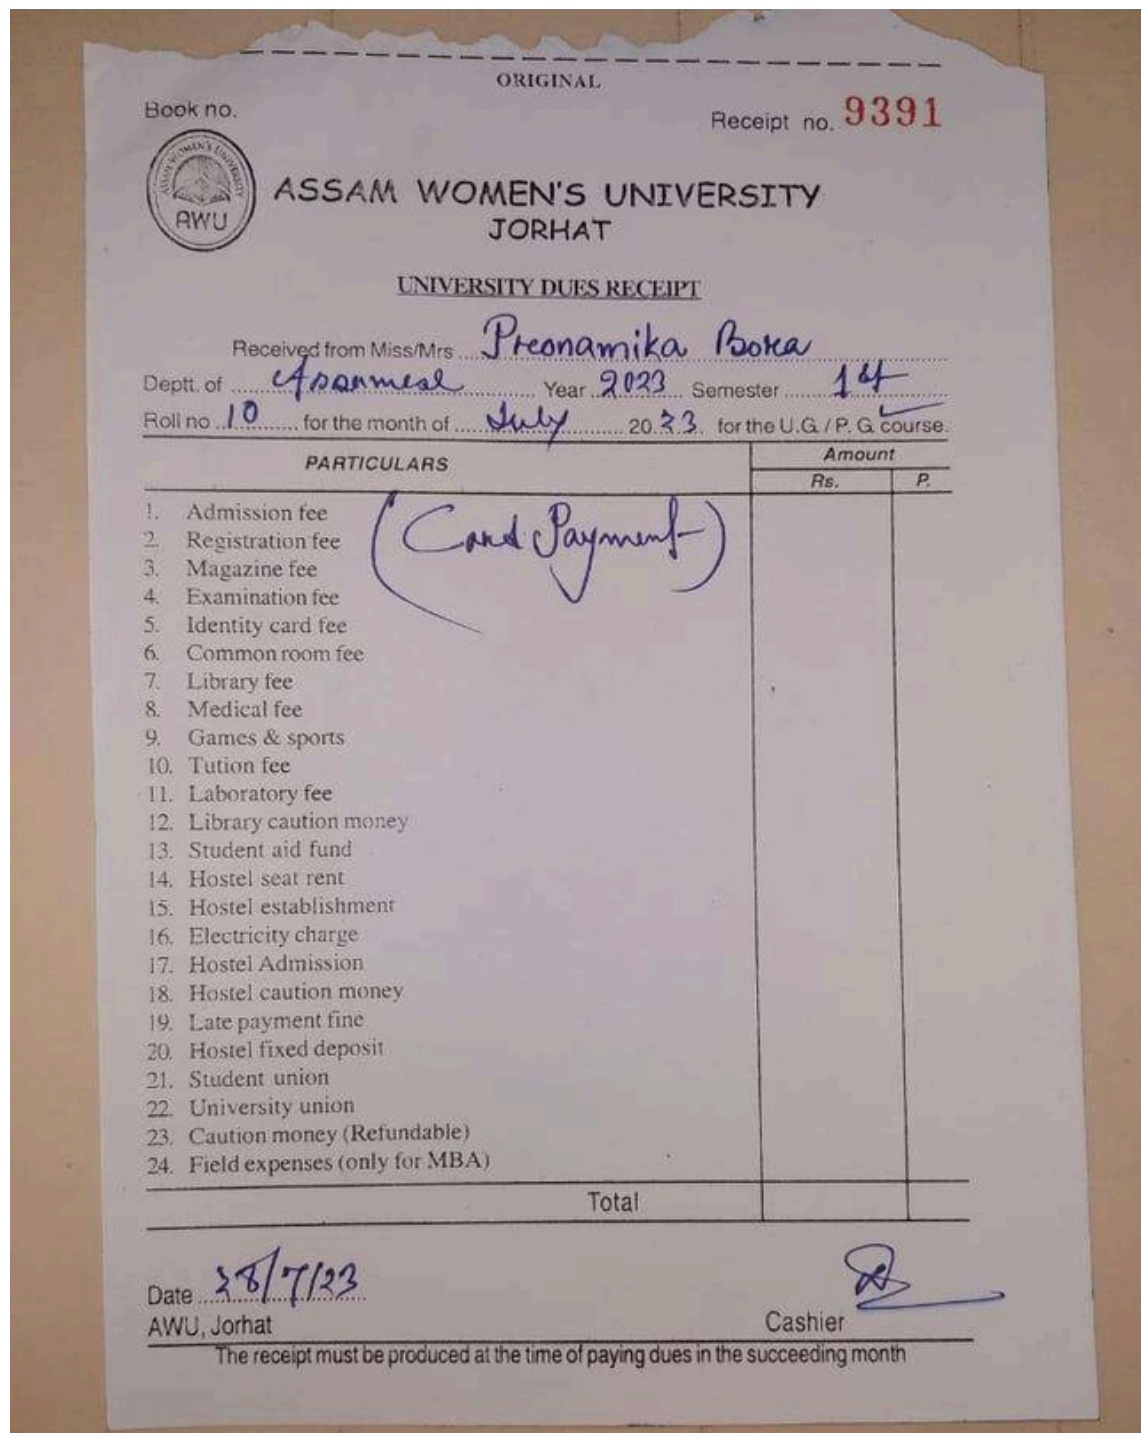 ORIGINAL
Book no.
Receipt no. 9391
ASSAM WOMEN'S UNIVERSITY
AWU
ASSAM WOMEN'S UNIVERSITY
JORHAT
UNIVERSITY DUES RECEIPT
Received from Miss/Mrs Preonamika Bora
Deptt. of Assamese Year 2023 Semester 1st
Roll no 10 for the month of July 2023 for the U.G. / P. G. course.
PARTICULARS
Amount
Rs. P.
(Card Payment)
1. Admission fee
2. Registration fee
3. Magazine fee
4. Examination fee
5. Identity card fee
6. Common room fee
7. Library fee
8. Medical fee
9. Games & sports
10. Tution fee
11. Laboratory fee
12. Library caution money
13. Student aid fund
14. Hostel seat rent
15. Hostel establishment
16. Electricity charge
17. Hostel Admission
18. Hostel caution money
19. Late payment fine
20. Hostel fixed deposit
21. Student union
22. University union
23. Caution money (Refundable)
24. Field expenses (only for MBA)
Total
Date 28/7/23
AWU, Jorhat
Cashier
The receipt must be produced at the time of paying dues in the succeeding month